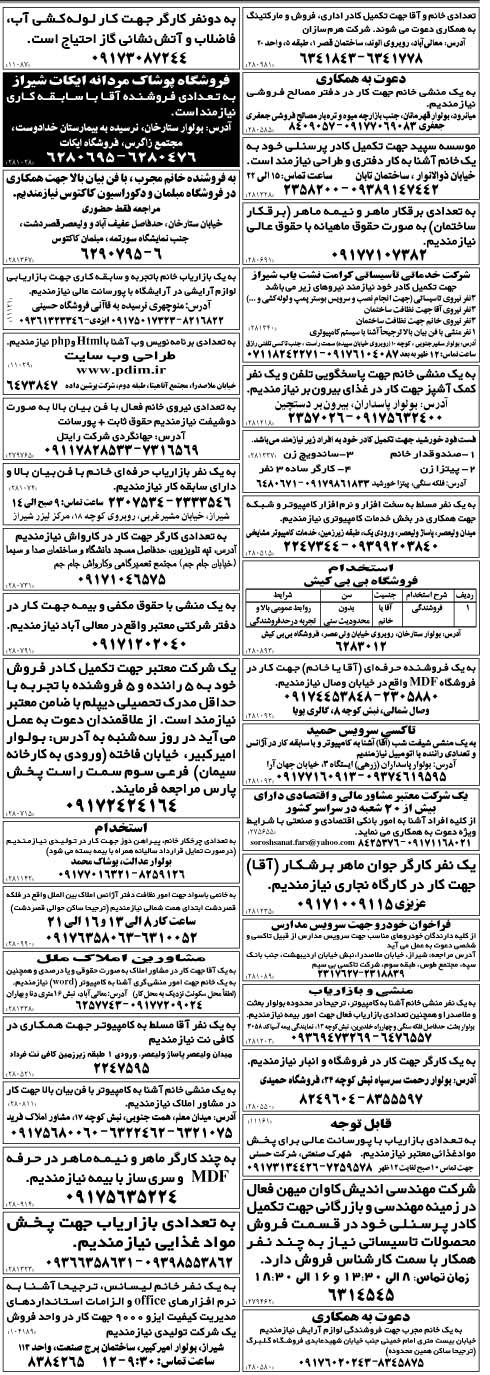 تعدادی خانم و آقا جهت تکمیل کادر اداری، فروش و مارکتینگ
به همکاری دعوت می نمائیم. شرکت هرم سازان
آدرس: معالی‌آباد، روبروی الوند، ساختمان قصر ۱، طبقه ۵، واحد ۲۰
۶۳۴۱۸۴۳-۶۳۴۱۷۷۸
/۲۸۰۹۸۱
دعوت به همکاری
به یک منشی خانم جهت کار در دفتر مصالح فروشی
نیازمندیم.
میانرود، بولوار قهرمانان، جنب بازارچه میوه و تره‌بار مصالح فروشی جعفری
جعفری ۰۹۱۷۷۰۶۹۰۸۳-۸۴۰۹۰۵۷
/۲۸۰۵۸۵
موسسه سپید جهت تکمیل کادر پرسنلی خود به
یک خانم آشنا به کار دفتری و طراحی نیازمند است.
خیابان ذوالانوار، ساختمان تابان ساعت تماس: ۱۵ الی ۲۲
۰۹۳۸۹۱۴۷۴۴۲-۲۳۵۸۲۰۰
/۲۸۱۳۲۸
به تعدادی برقکار ماهر و نیمه ماهر (برقکار
ساختمان) به صورت حقوق ماهیانه با حقوق عالی
نیازمندیم.
۰۹۱۷۷۱۰۷۳۸۲
/۲۸۰۶۹۱
شرکت خدماتی تاسیساتی کرامت نشت یاب شیراز
جهت تکمیل کادر خود نیازمند نیروهای زیر می باشد
۳نفر نیروی تاسیساتی (جهت انجام نصب و سرویس بوستر پمپ و لوله‌کشی و ...)
۳نفر نیروی آقا جهت نظافت ساختمان
۳نفر نیروی خانم جهت نظافت ساختمان
۱نفر منشی با فن بیان بالا ترجیحاً آشنا با سیستم کامپیوتری
ساعت تماس: ۱۲ ظهر به بعد ۰۹۱۷۶۱۰۴۰۸۷-۰۷۱۱۸۲۴۲۲۷۱
به یک منشی خانم جهت پاسخگویی تلفن و یک نفر
کمک آشپز جهت کار در غذای بیرون بر نیازمندیم.
آدرس: بولوار پاسداران، بیرون‌بر دستچین
۰۹۱۷۵۶۳۲۴۰۰-۲۳۵۷۰۲۶
/۲۸۱۲۱۸
فست فود خورشید جهت تکمیل کادر خود به افراد زیر نیازمند می‌باشد.
۱-صندوقدار خانم ۳-ساندویچ زن
۲-پیتزا زن ۴-کارگر ساده ۳ نفر
آدرس: فلکه سنگی، پیتزا خورشید ۰۹۱۷۹۸۶۱۸۳۳-۶۴۸۰۶۷۱
به یک نفر مسلط به سخت افزار و نرم افزار کامپیوتر و شبکه
جهت همکاری در بخش خدمات کامپیوتری نیازمندیم.
میدان ولیعصر، پاساژ ولیعصر، ورودی یک، طبقه زیرزمین، خدمات کامپیوتر مشایخی
۰۹۳۹۹۲۰۳۸۴۰-۲۲۴۷۳۴۴
/۲۸۰۵۱۵
استخدام
فروشگاه بی بی کیش
ردیف شرح استخدام جنسیت سن شرایط
۱ فروشندگی آقا یا خانم بدون محدودیت سنی روابط عمومی بالا و تجربه در حد فروشندگی
آدرس: بولوار ستارخان، روبروی خیابان ولی عصر، فروشگاه بی‌بی کیش
۶۲۸۳۰۱۲
/۲۸۰۸۹۳
به یک فروشنده حرفه‌ای (آقا یا خانم) جهت کار در
فروشگاه MDF واقع در خیابان وصال نیازمندیم.
۰۹۱۷۴۴۵۳۸۴۸-۲۳۰۵۸۸۰
وصال شمالی، نبش کوچه ۸، گالری پویا
/۲۸۱۰۹۲
تاکسی سرویس حمید
به یک منشی شیفت شب (آقا) آشنا به کامپیوتر و با سابقه کار در آژانس
و تعدادی راننده با اتومبیل نیازمندیم
آدرس: بولوار پاسداران (زرهی) ایستگاه ۳، خیابان جهان آرا
۰۹۳۷۴۶۱۹۵۹۵-۰۹۱۷۷۱۶۰۹۱۳
/۲۸۱۰۹۳
یک شرکت معتبر مشاور مالی و اقتصادی دارای
بیش از ۲۰ شعبه در سراسر کشور
از کلیه افراد آشنا به امور بانکی اقتصادی و صنعتی با شرایط
ویژه دعوت به همکاری می نماید.
soroshsanat.fars@yahoo.com
۰۹۱۷۱۱۶۸۰۲۱-۸۴۲۵۳۷۶
/۲۷۵۶۵۵
یک نفر کارگر جوان ماهر برشکار (آقا)
جهت کار در کارگاه نجاری نیازمندیم.
عزیزی ۰۹۱۷۱۰۰۹۱۱۵
/۲۸۱۲۳۵
فراخوان خودرو جهت سرویس مدارس
از کلیه دارندگان خودروهای مناسب جهت سرویس مدارس از قبیل تاکسی و
شخصی دعوت به عمل می آید
آدرس مراجعه: شیراز، خیابان ملاصدرا، نبش خیابان اردیبهشت، جنب بانک
سپه، مجتمع طوس، طبقه سوم، شرکت تاکسی بی سیم
۲۳۱۸۸۳۹-۲۳۱۷۶۲۷
/۲۸۱۰۸۹
منشی و بازاریاب
به یک نفر منشی خانم آشنا به کامپیوتر، ترجیحاً در محدوده بولوار بعثت
و ملاصدرا و همچنین تعدادی بازاریاب فعال جهت امور بیمه نیازمندیم.
۶۴۷۶۵۵۷-۰۹۳۶۹۴۷۳۲۶۹
/۲۸۱۲۰۳
به یک کارگر جهت کار در فروشگاه و انبار نیازمندیم.
آدرس: بولوار رحمت سرسپاه نبش کوچه ۲۴، فروشگاه حمیدی
۸۳۵۵۵۹۷-۸۲۴۹۶۰۴
/۲۸۰۵۵۰
قابل توجه
/۱۱۱۶۱
به تعدادی بازاریاب با پورسانت عالی برای پخش
موادغذائی نیازمند است. شهرک صنعتی، شرکت حسنی
جهت تماس ۱۰ صبح لغایت ۱۲ ظهر ۷۲۵۹۵۷۸-۰۹۱۷۳۱۳۴۴۲۶
شرکت مهندسی اندیش کاوان میهن فعال
در زمینه مهندسی و بازرگانی جهت تکمیل
کادر پرسنلی خود در قسمت فروش
محصولات تاسیساتی نیاز به چند نفر
همکار با سمت کارشناس فروش دارد.
زمان تماس: ۸ الی ۱۳:۳۰ و ۱۶ الی ۱۸:۳۰
۶۳۱۴۵۴۵
/۲۷۹۴۶۲
دعوت به همکاری
به یک خانم مجرب جهت فروشندگی لوازم آرایش نیازمندیم
خیابان بیست متری امام خمینی جنب خیابان شهیدعابدی فروشگاه گلبرگ
(ترجیحاً ساکن همین محدوده)
۸۳۴۵۸۷۵-۰۹۱۷۶۰۲۰۲۴۳
/۲۸۰۵۸۰
به دونفر کارگر جهت کار لوله‌کشی آب،
فاضلاب و آتش نشانی گاز احتیاج است.
۰۹۱۷۳۰۸۷۲۴۴
/۱۱۰۸۷
فروشگاه پوشاک مردانه ایکات شیراز
به تعدادی فروشنده آقا با سابقه کاری
نیازمند است.
آدرس: بولوار ستارخان، نرسیده به بیمارستان خدادوست،
مجتمع زاگرس، فروشگاه ایکات
۶۲۸۰۴۷۶-۶۲۸۰۶۹۵
/۲۸۱۰۲۸
به فروشنده خانم مجرب، با فن بیان بالا جهت همکاری
در فروشگاه مبلمان و دکوراسیون کاکتوس نیازمندیم.
مراجعه فقط حضوری
خیابان ستارخان، حدفاصل عفیف آباد و ولیعصر قصردشت،
جنب نمایشگاه سورتمه، مبلمان کاکتوس
۶۲۹۰۷۹۵-۶
/۲۸۱۳۶۷
به یک بازاریاب خانم باتجربه و سابقه کاری جهت بازاریابی
لوازم آرایشی در آرایشگاه با پورسانت عالی نیازمندیم.
آدرس: منوچهری نرسیده به قاآنی فروشگاه حسینی
۸۲۱۶۸۲۲-۰۹۱۷۵۰۱۷۳۲۳ ایزدی-۰۹۳۶۱۳۲۳۳۴۶
به تعدادی برنامه‌نویس وب آشنا با Html و php نیازمندیم.
طراحی وب سایت
www.pdim.ir
/۱۱۰۲۹
خیابان ملاصدرا، مجتمع آناهیتا، طبقه دوم، شرکت پرشین داده ۶۴۷۳۸۴۷
به تعدادی نیروی خانم فعال با فن بیان بالا به صورت
دوشیفت نیازمندیم حقوق ثابت + پورسانت
آدرس: جهانگردی شرکت رایتل
۷۳۱۶۵۶۹-۰۹۱۱۷۸۲۸۵۳۳
/۲۷۹۷۶۵
به یک نفر بازاریاب حرفه‌ای خانم با فن بیان بالا و
دارای سابقه کار نیازمندیم.
۲۳۳۳۵۴۶-۲۳۰۷۵۳۴ ساعت تماس: ۹ صبح الی ۱۴
شیراز، خیابان مشیرغربی، روبروی کوچه ۱۸، مرکز لیزر شیراز
/۲۸۱۰۷۴
به تعدادی کارگر جهت کار در کارواش نیازمندیم
آدرس، تپه تلویزیون، حدفاصل مسجد دانشگاه و ساختمان صدا و سیما
(خیابان جام جم) مجتمع تعمیرگاهی وکارواش جام جم
۰۹۱۷۱۰۴۶۵۷۵
/۲۸۰۷۳۱
به یک منشی با حقوق مکفی و بیمه جهت کار در
دفتر شرکتی معتبر واقع در معالی آباد نیازمندیم.
۰۹۱۷۱۲۰۲۰۴۰
/۲۸۰۷۹۱
یک شرکت معتبر جهت تکمیل کادر فروش
خود به ۵ راننده و ۵ فروشنده با تجربه با
حداقل مدرک تحصیلی دیپلم با ضامن معتبر
نیازمند است. از علاقمندان دعوت به عمل
می‌آید در روز سه‌شنبه به آدرس: بولوار
امیرکبیر، خیابان فاخته (ورودی به کارخانه
سیمان) فرعی سوم سمت راست پخش
پارس مراجعه فرمایند.
۰۹۱۷۲۴۲۴۱۶۴
/۲۸۰۷۱۵
استخدام
به تعدادی چرخکار خانم، پیراهن دوز جهت کار در تولیدی نیازمندیم
(در صورت تمایل قرارداد سالیانه همراه با بیمه بسته می شود)
بولوار عدالت، پوشاک محمد
۸۲۵۹۱۲۶-۰۹۱۷۷۰۱۶۳۲۱
/۲۸۱۱۴۲
به خانمی باسواد جهت امور نظافت دفتر آژانس املاک بین الملل واقع در فلکه
قصردشت ابتدای همت شمالی نیازمندیم (ترجیحا ساکن حوالی قصردشت)
ساعت کار ۸ الی ۱۳ و ۱۶ الی ۲۱
۶۳۱۰۰۵۲-۰۹۱۷۶۳۵۸۰۶۳
/۲۸۰۹۹۰
مشاورین املاک ملل
به یک آقا جهت کار در مشاور املاک به صورت حقوقی و یا درصدی و همچنین
به یک خانم جهت امور منشی گری آشنا به کامپیوتر (word) نیازمندیم.
(لطفاً محل سکونت نزدیک به محل کار) آدرس: معالی‌آباد، نبش ۱۶ متری دنا و بهاران
۰۹۱۷۷۲۰۹۰۲۴-۶۲۵۷۷۴۳
/۲۸۱۳۲۸
به یک نفر آقا مسلط به کامپیوتر جهت همکاری در
کافی نت نیازمندیم
میدان ولیعصر پاساژ ولیعصر، ورودی ۱ طبقه زیرزمین کافی نت فرداد
۲۲۴۷۵۹۵
/۲۸۰۵۲۱
به یک منشی خانم آشنا به کامپیوتر با فن بیان بالا جهت کار
در مشاور املاک نیازمندیم.
/۲۸۰۸۱۱
آدرس: میدان معلم، همت جنوبی، نبش کوچه ۱۷، مشاور املاک فرید
۶۳۲۱۰۷۵-۶۳۲۲۴۶۲-۰۹۱۷۵۶۸۰۰۶۰
به چند کارگر ماهر و نیمه‌ماهر در حرفه
MDF و سری ساز با بیمه نیازمندیم.
۰۹۱۷۵۶۳۵۲۲۴
/۲۸۰۹۱۴
به تعدادی بازاریاب جهت پخش
مواد غذایی نیازمندیم.
۰۹۳۹۸۵۵۳۸۶۲-۰۹۳۶۶۳۵۸۶۳۱
/۲۸۱۳۲۳
به یک نفر خانم لیسانس، ترجیحا آشنا به
نرم افزارهای office و الزامات استانداردهای
مدیریت کیفیت ایزو ۹۰۰۰ جهت کار در واحد فروش
یک شرکت تولیدی نیازمندیم
/۱۰۴۱۸۹
شیراز، بولوار امیرکبیر، ساختمان برج صنعت، واحد ۱۱۳
ساعت تماس: ۹:۳۰-۱۲ ۸۳۸۴۲۶۵